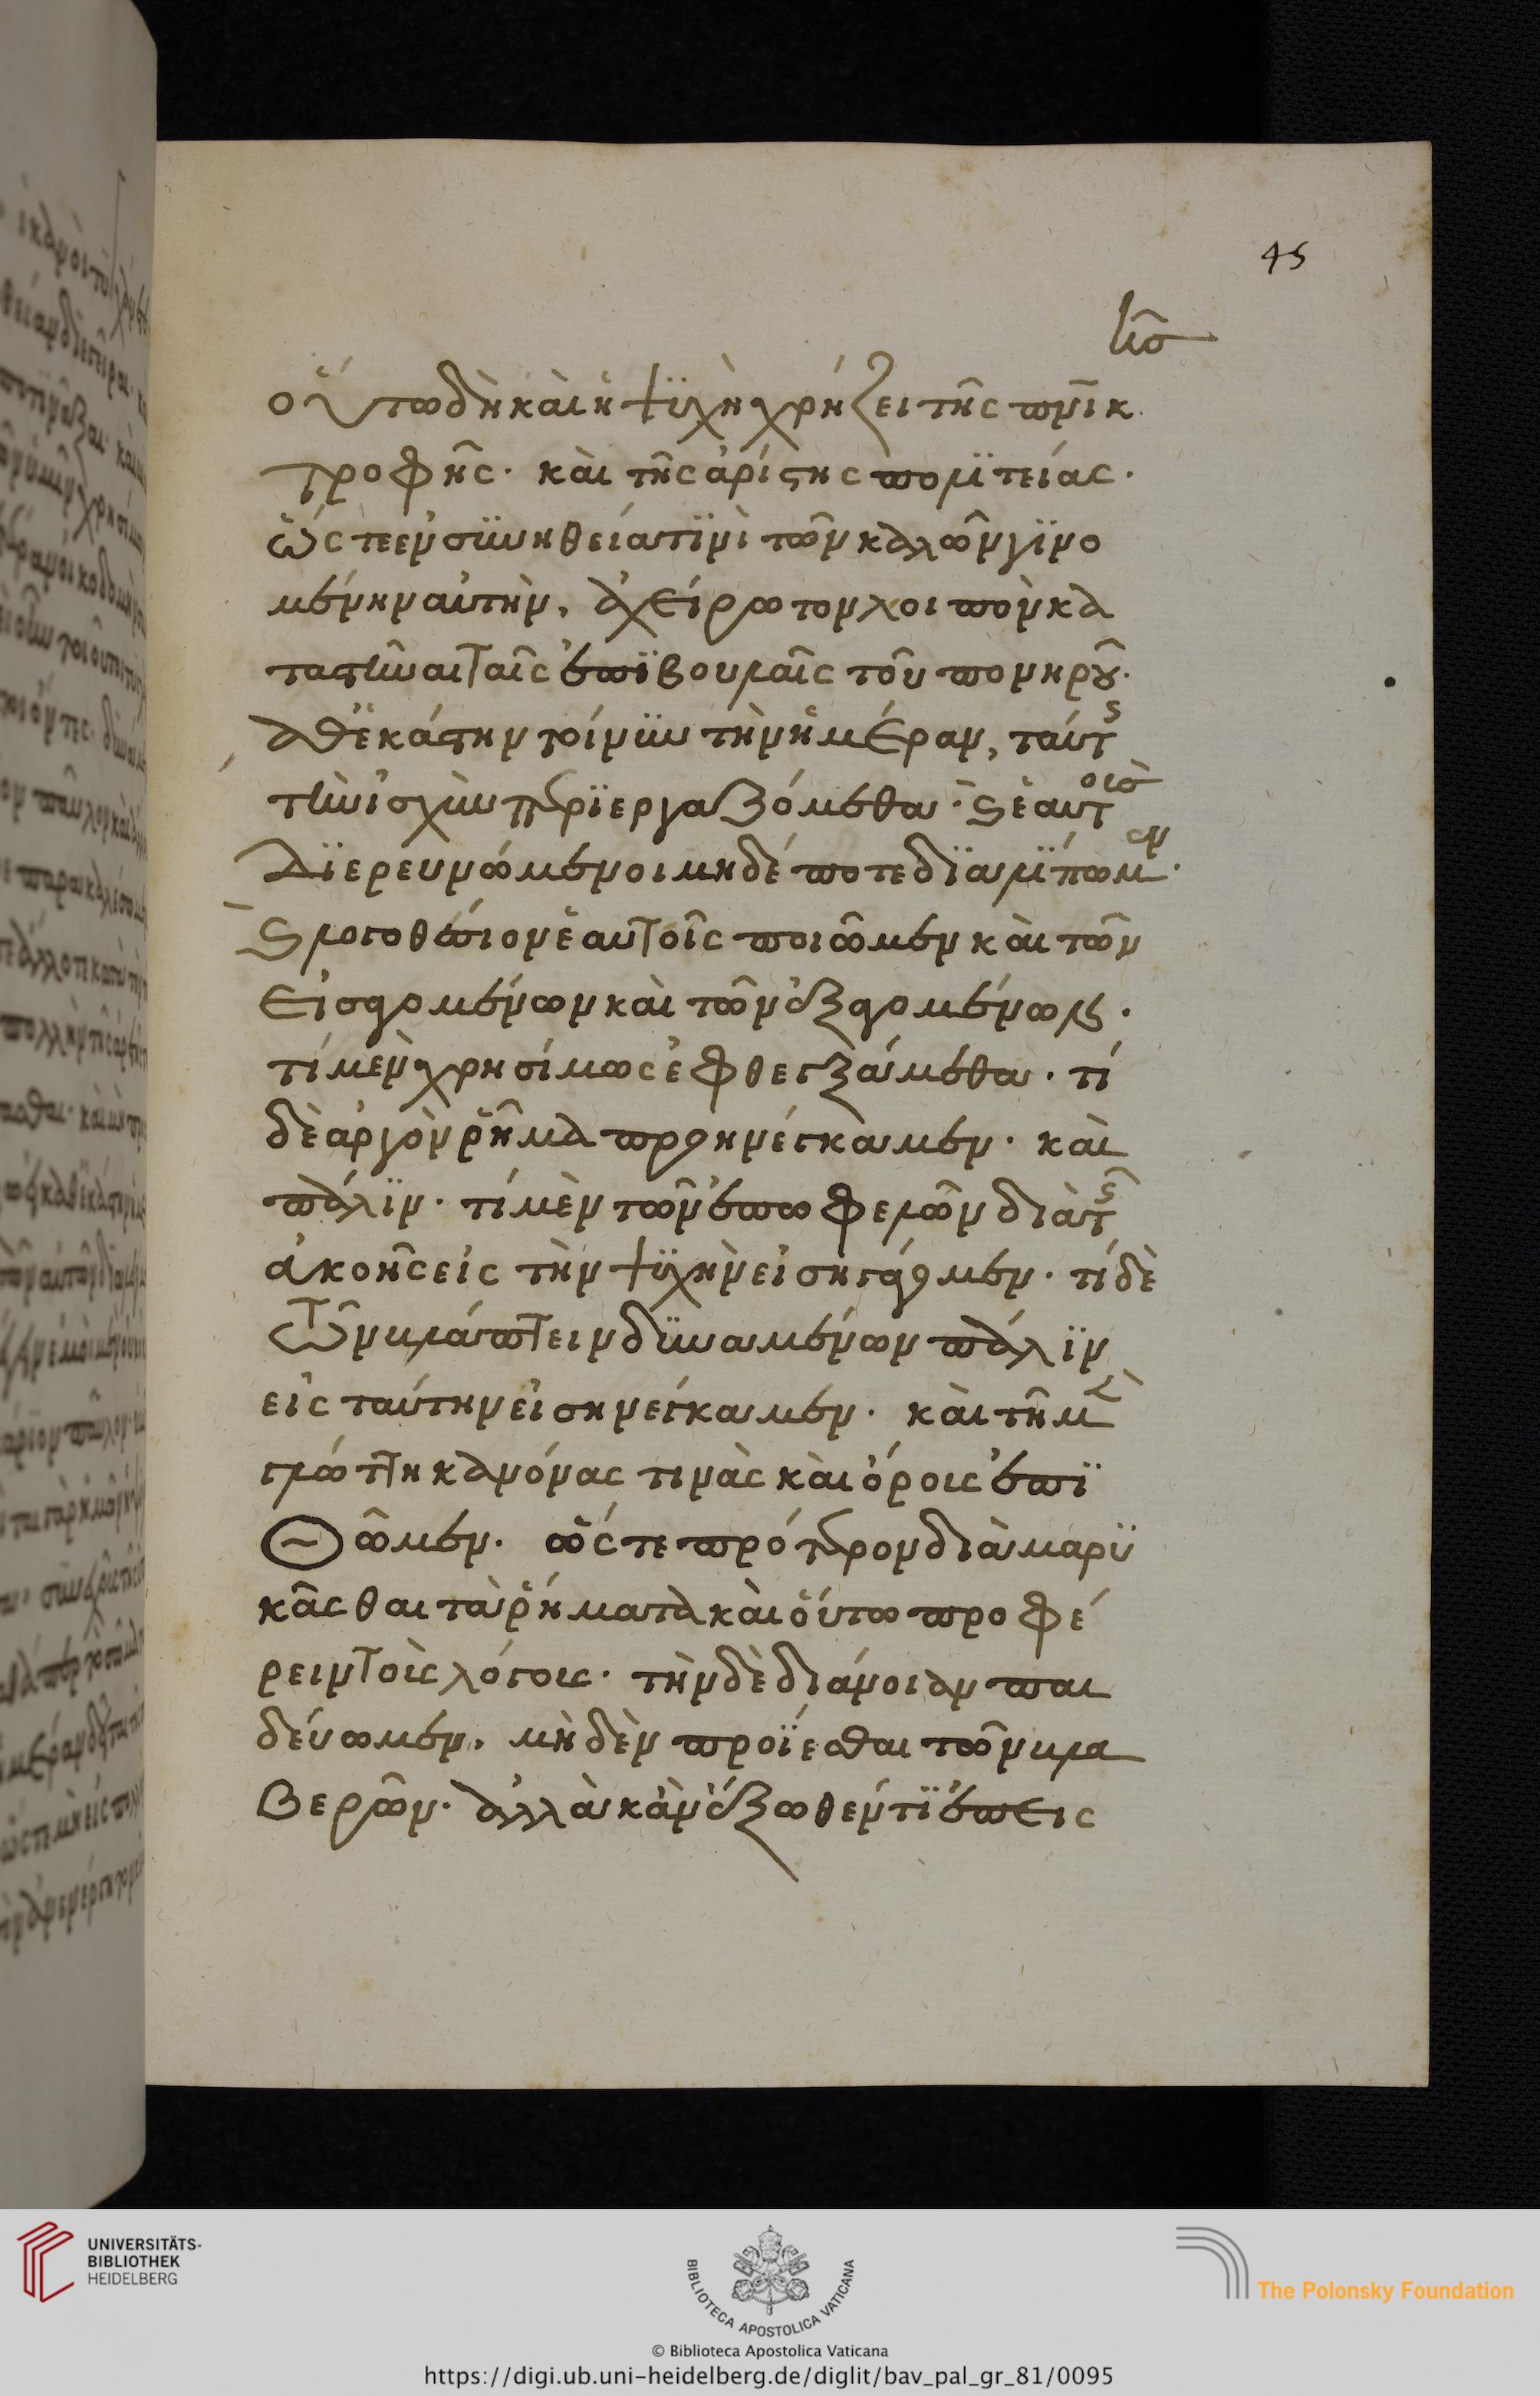 45
οὕτω δὴ καὶ ἡ ψϋχὴ χρήζει τῆς πνῖκ
τροφῆς· καὶ τῆς ἀρίστης πολϊτείας·
ὥς τε ἐν σϋνηθεία τϊνὶ τῶν καλῶν γϊνο
μένην αὐτὴν, ἀχείρωτον λοιπὸν κα
ταστῆναι ταῖς ἐπϊβουλαῖς τοῦ πονηροῦ·
ἀθ' ἑκάστην τοίνϋν τὴν ἡμέραν, ταύτ
τὴν ἰσχὺν περϊεργαζόμεθα· καὶ ἑαυτοισ
δϊερευνώμενοι μηδέ ποτε δϊαλϊπωμεν·
καὶ λογοθέσιον ἑαυτοῖς ποιῶμεν καὶ τῶν
εἰσαγομένων καὶ τῶν ἐξαγομένων·
τί μὲν χρησίμως ἐφθεγξάμεθα· τί
δὲ ἀργὸν ῥῆμα προηνέγκαμεν· καὶ
πάλϊν· τί μὲν τῶν ἐπωφελῶν διὰ τ
ἀκοῆς εἰς τὴν ψϋχὴν εἰσηγάγομεν· τί δὲ
τῶν βλάπτειν δϋναμένων πάλϊν
εἰς ταύτην εἰσηνέγκαμεν· καὶ τῆ μὲ
γλώττη κανόνας τινὰς καὶ ὅροις ἐπϊ
θῶμεν· ὥς τε πρότερον διὰ μαρϋ
κᾶσθαι τὰ ῥήματα καὶ οὕτω προφέ
ρειν τοὶς λόγοις· τὴν δὲ διάνοιαν παι
δεύωμεν, μὴ δὲν προΐεσθαι τῶν βλα
βερῶν· ἀλλὰ κἂν ἔξωθέν τϊ ἐπεις
UNIVERSITÄTS-
BIBLIOTHEK
HEIDELBERG
BIBLIOTECA APOSTOLICA VATICANA
The Polonsky Foundation
© Biblioteca Apostolica Vaticana
https://digi.ub.uni-heidelberg.de/diglit/bav_pal_gr_81/0095